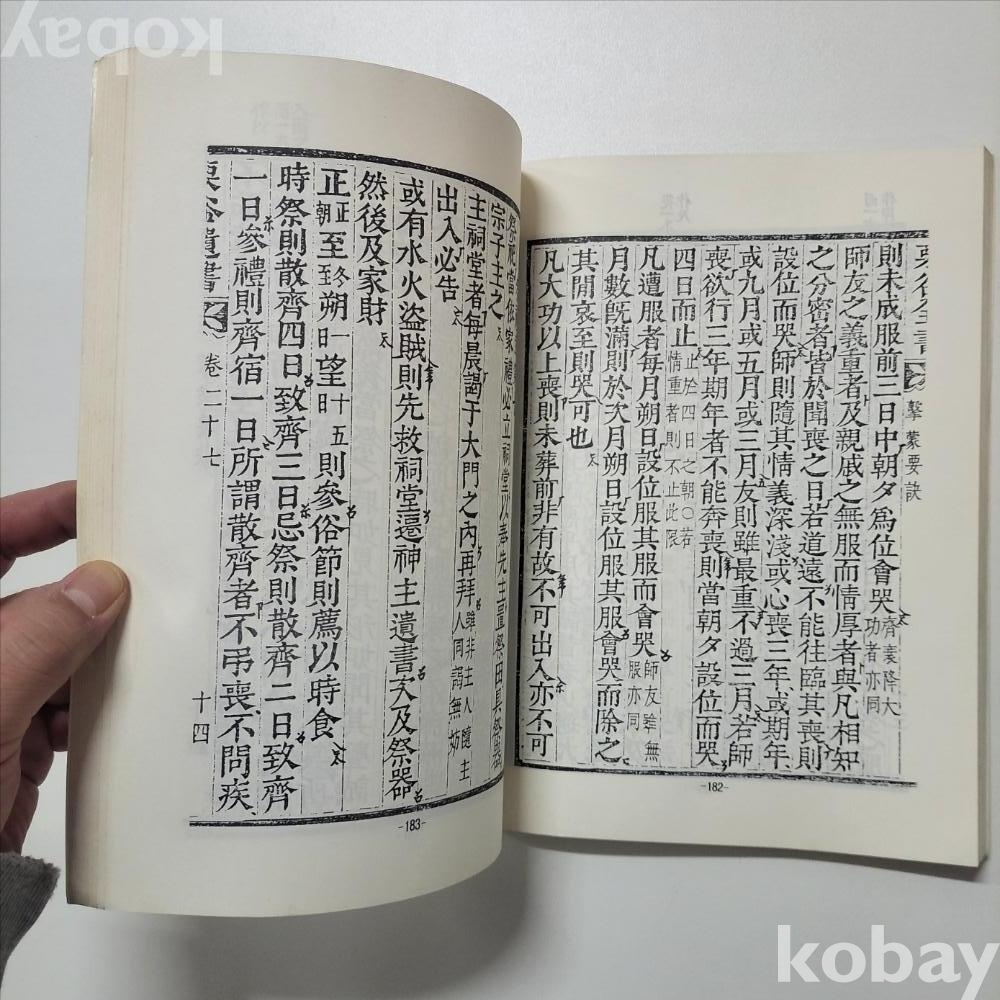 栗谷全書 擊蒙要訣
則未成服前三日中朝夕爲位會哭齊衰降大功者亦同
師友之義重者及親戚之無服而情厚者與凡相知
之分密者皆於聞喪之日若道遠不能往臨其喪則
設位而哭師則隨其情義深淺或心喪三年或期年
或九月或五月或三月友則雖最重不過三月若師
喪欲行三年期年者不能奔喪則當朝夕設位而哭
四日而止止於四日之朝○若情重者則不止此限
凡遭服者每月朔日設位服其服而會哭師友雖無服亦同
月數旣滿則於次月朔日設位服其服會哭而除之
其閒哀至則哭可也
凡大功以上喪則未葬前非有故不可出入亦不可
-182-
祭祀當依家禮必立祠堂以奉先主置祭田具祭器
宗子主之
主祠堂者每晨謁于大門之內再拜雖非主人隨主人同謁無妨
出入必告
或有水火盜賊則先救祠堂遷神主遺書次及祭器
然後及家財
正正朝至冬至朔一日望十五日則參俗節則薦以時食
時祭則散齊四日致齊三日忌祭則散齊二日致齊
一日參禮則齊宿一日所謂散齊者不弔喪不問疾
卷二十七 十四
-183-
kobay
kobay